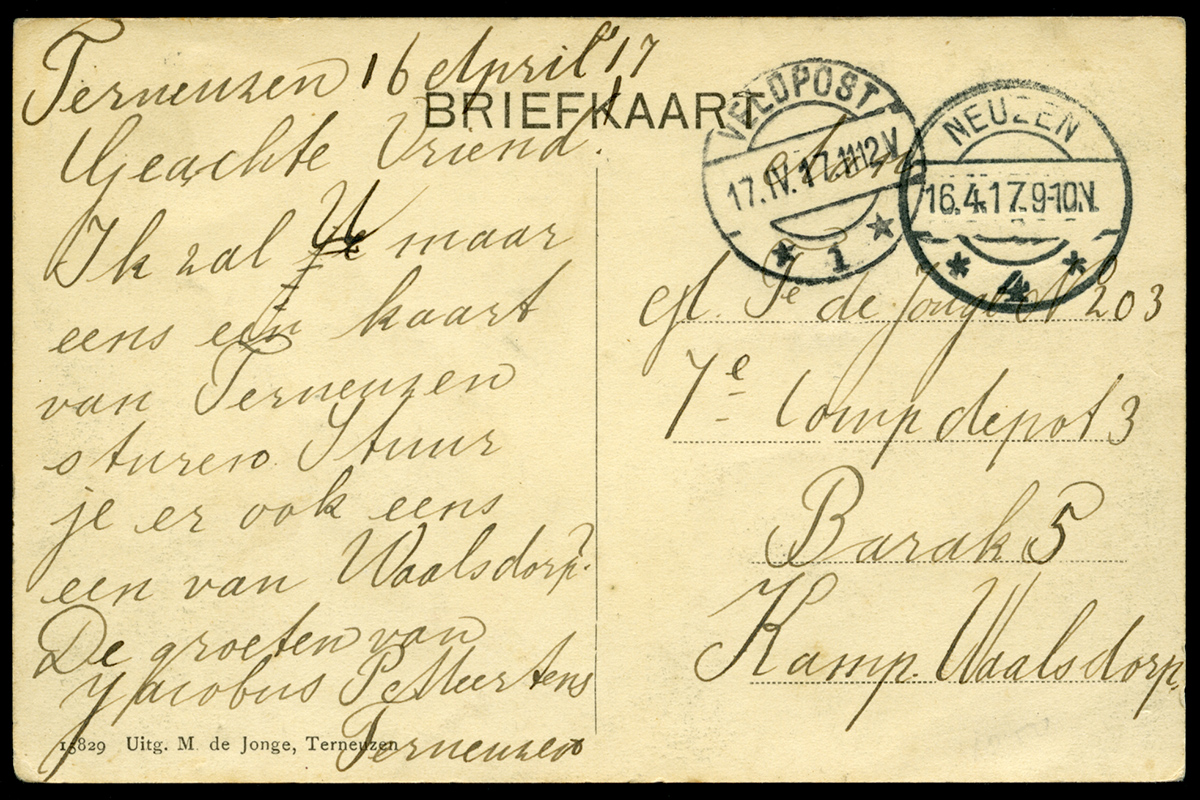 Terneuzen 16 April '17
BRIEFKAART
Geachte Vriend.
Ik zal U maar
eens een kaart
van Terneuzen
sturen. Stuur
je er ook eens
een van Waalsdorp.
De groeten van
Jacobus P Meertens
Terneuzen
15829 Uitg. M. de Jonge, Terneuzen
VELDPOST
17.IV.17.11-12V
* 1 *
NEUZEN
16.4.17.9-10N.
* 4 *
Pe de Jonge N 203
7e Comp depot 3
Barak 5
Kamp. Waalsdorp.